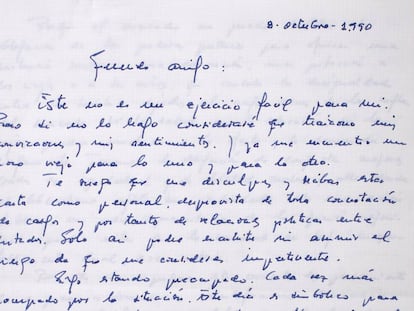 8. octubre - 1.990
amigo :
Este no es un ejercicio fácil para mí.
Pero si no lo hago consideraré que traiciono mis
convicciones y mis sentimientos. Y ya me encuentro un
poco viejo para lo uno y para lo otro.
Te ruego que me disculpes y recibas esta
carta como personal, desprovista de toda connotación
de cargo y por tanto de relaciones políticas entre
Estados. Solo así podré escribirte sin asumir el
riesgo de que me consideres impertinente.
Sigo estando preocupado. Cada vez más
preocupado por la situación. Este día es simbólico para